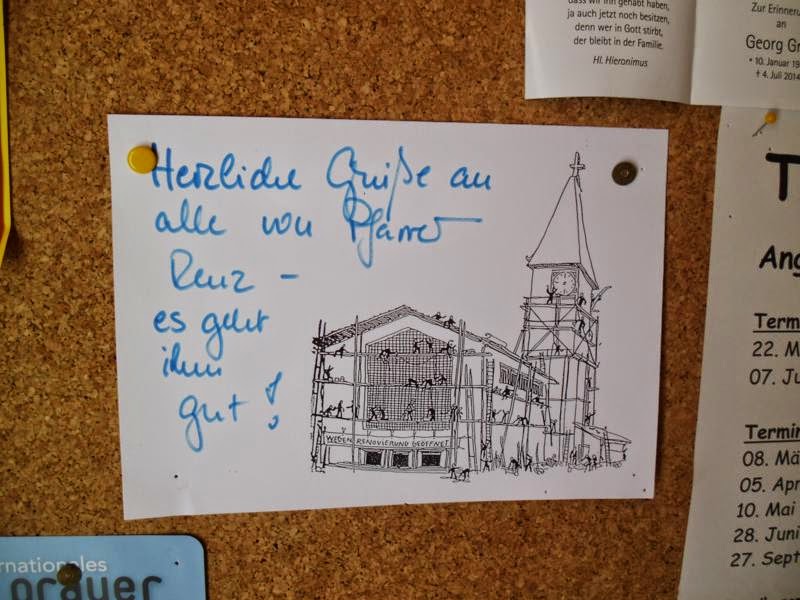 dass wir ihn gehabt haben,
ja auch jetzt noch besitzen,
denn wer in Gott stirbt,
der bleibt in der Familie.
Hl. Hieronimus
Zur Erinneru
an
Georg Gr
* 10. Januar 19
† 4. Juli 2014
Herzliche Grüße an
alle von Pfarrer
Renz -
es geht
ihm
gut!
WEGEN RENOVIERUNG GEÖFFNET
T
Ang
Term
22. M
07. Ju
Termin
08. Mä
05. Apr
10. Mai
28. Juni
27. Sept
rnationales